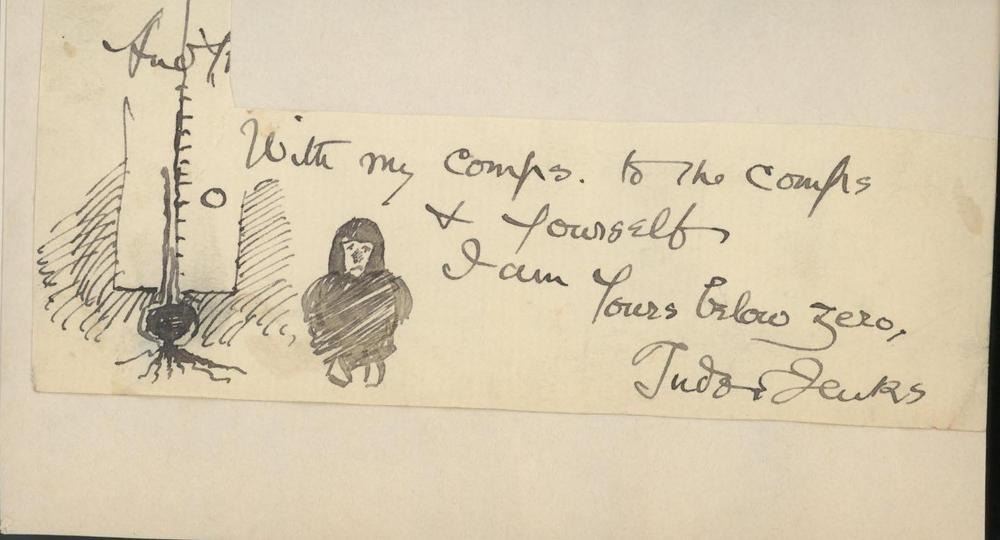 With my comps. to the comps
& yourself
I am yours below zero,
Tudor Jenks